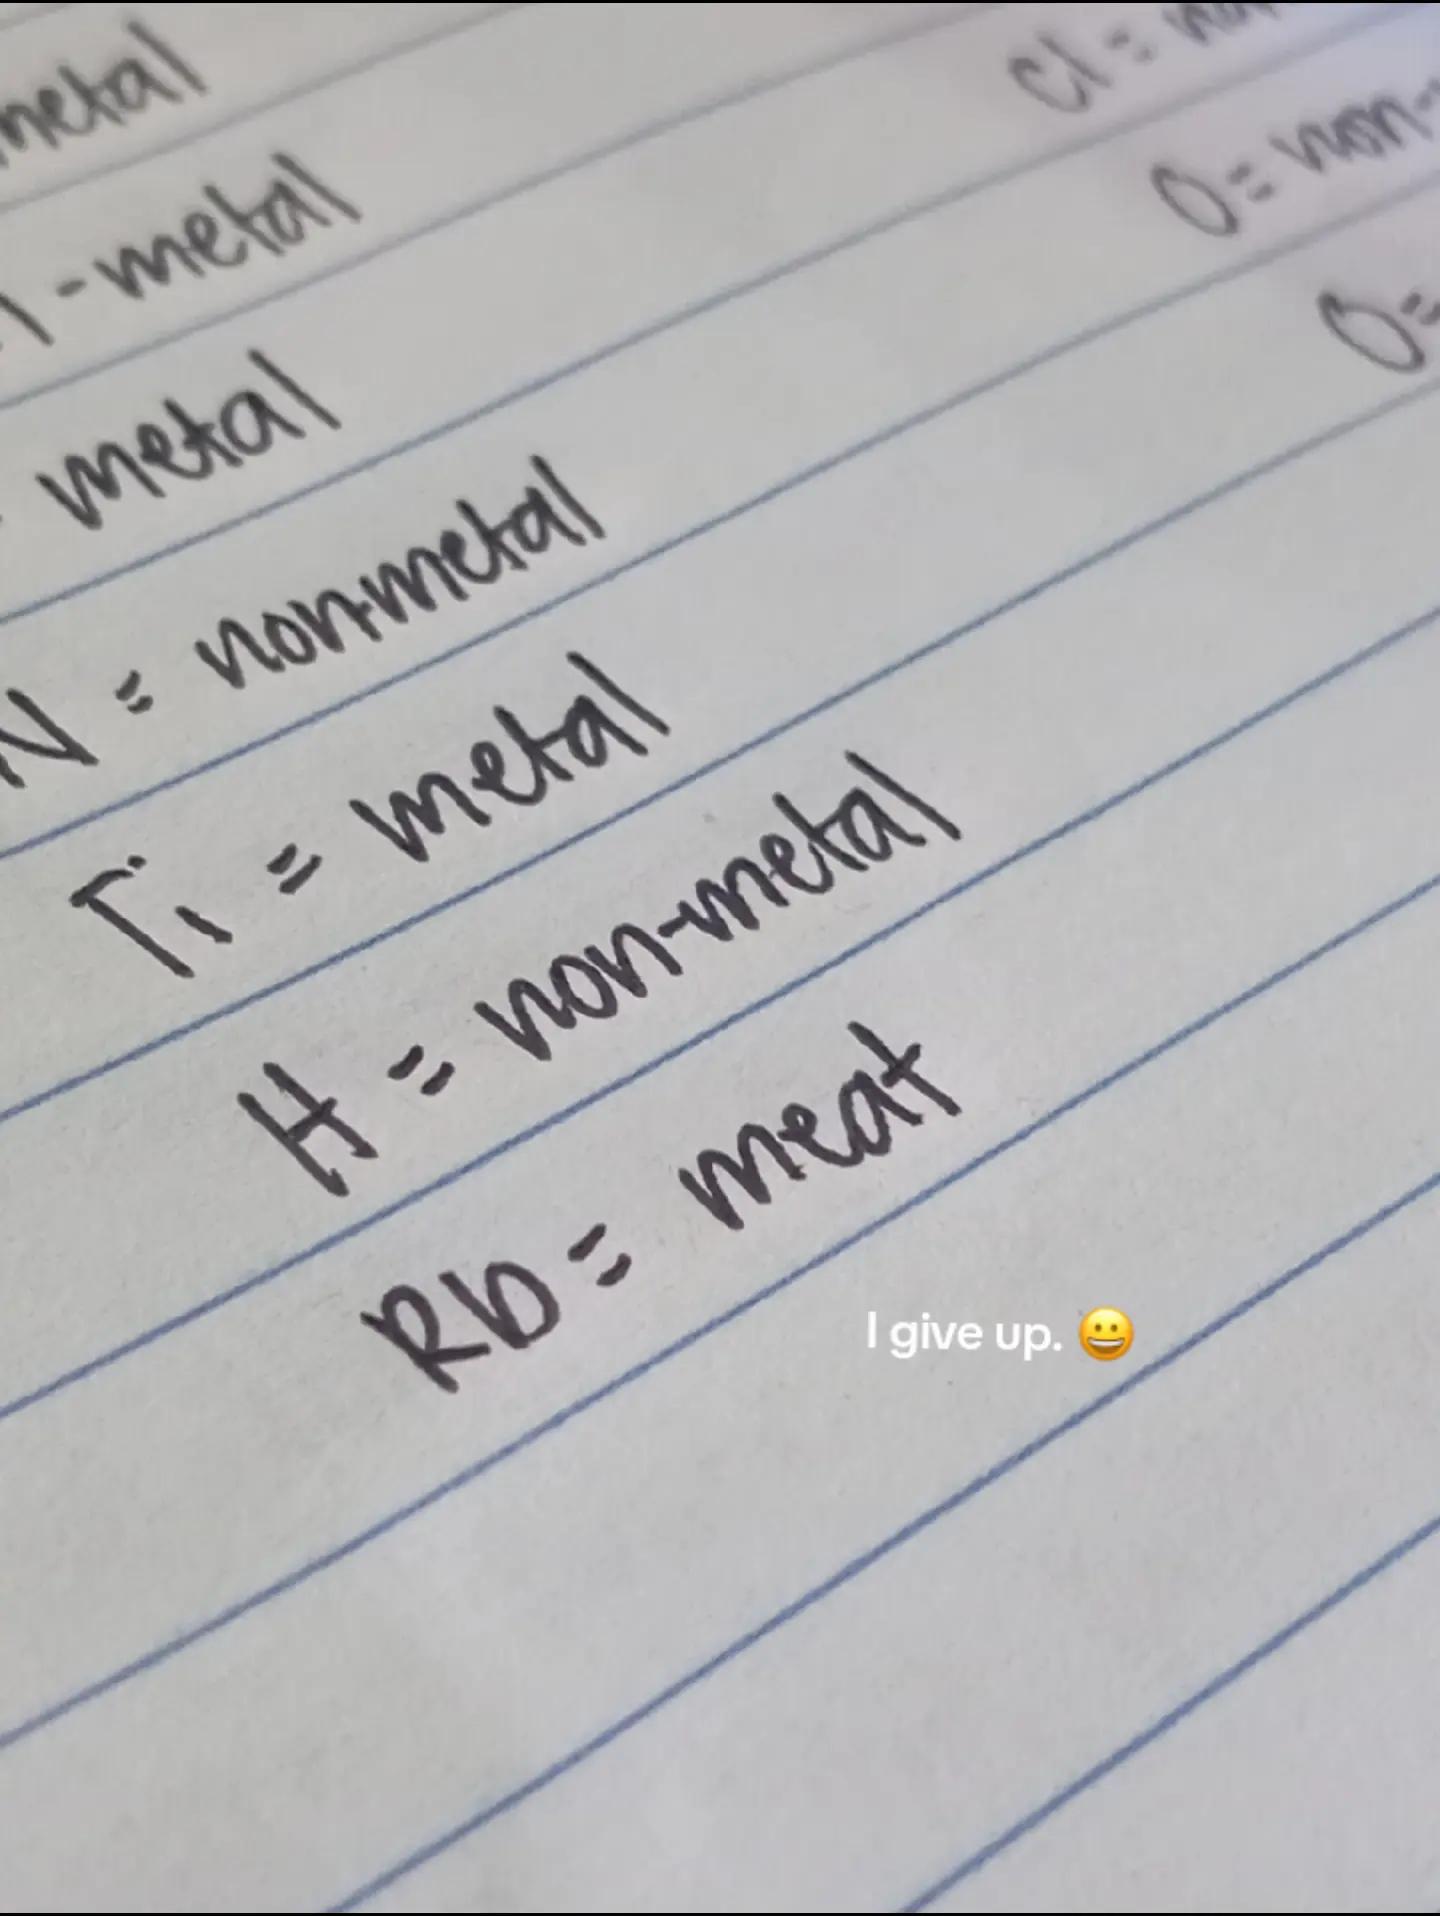 metal
- metal
metal
N = nonmetal
Ti = metal
H = non-metal
Rb = meat
Cl =
O = non-
O =
I give up. 😀